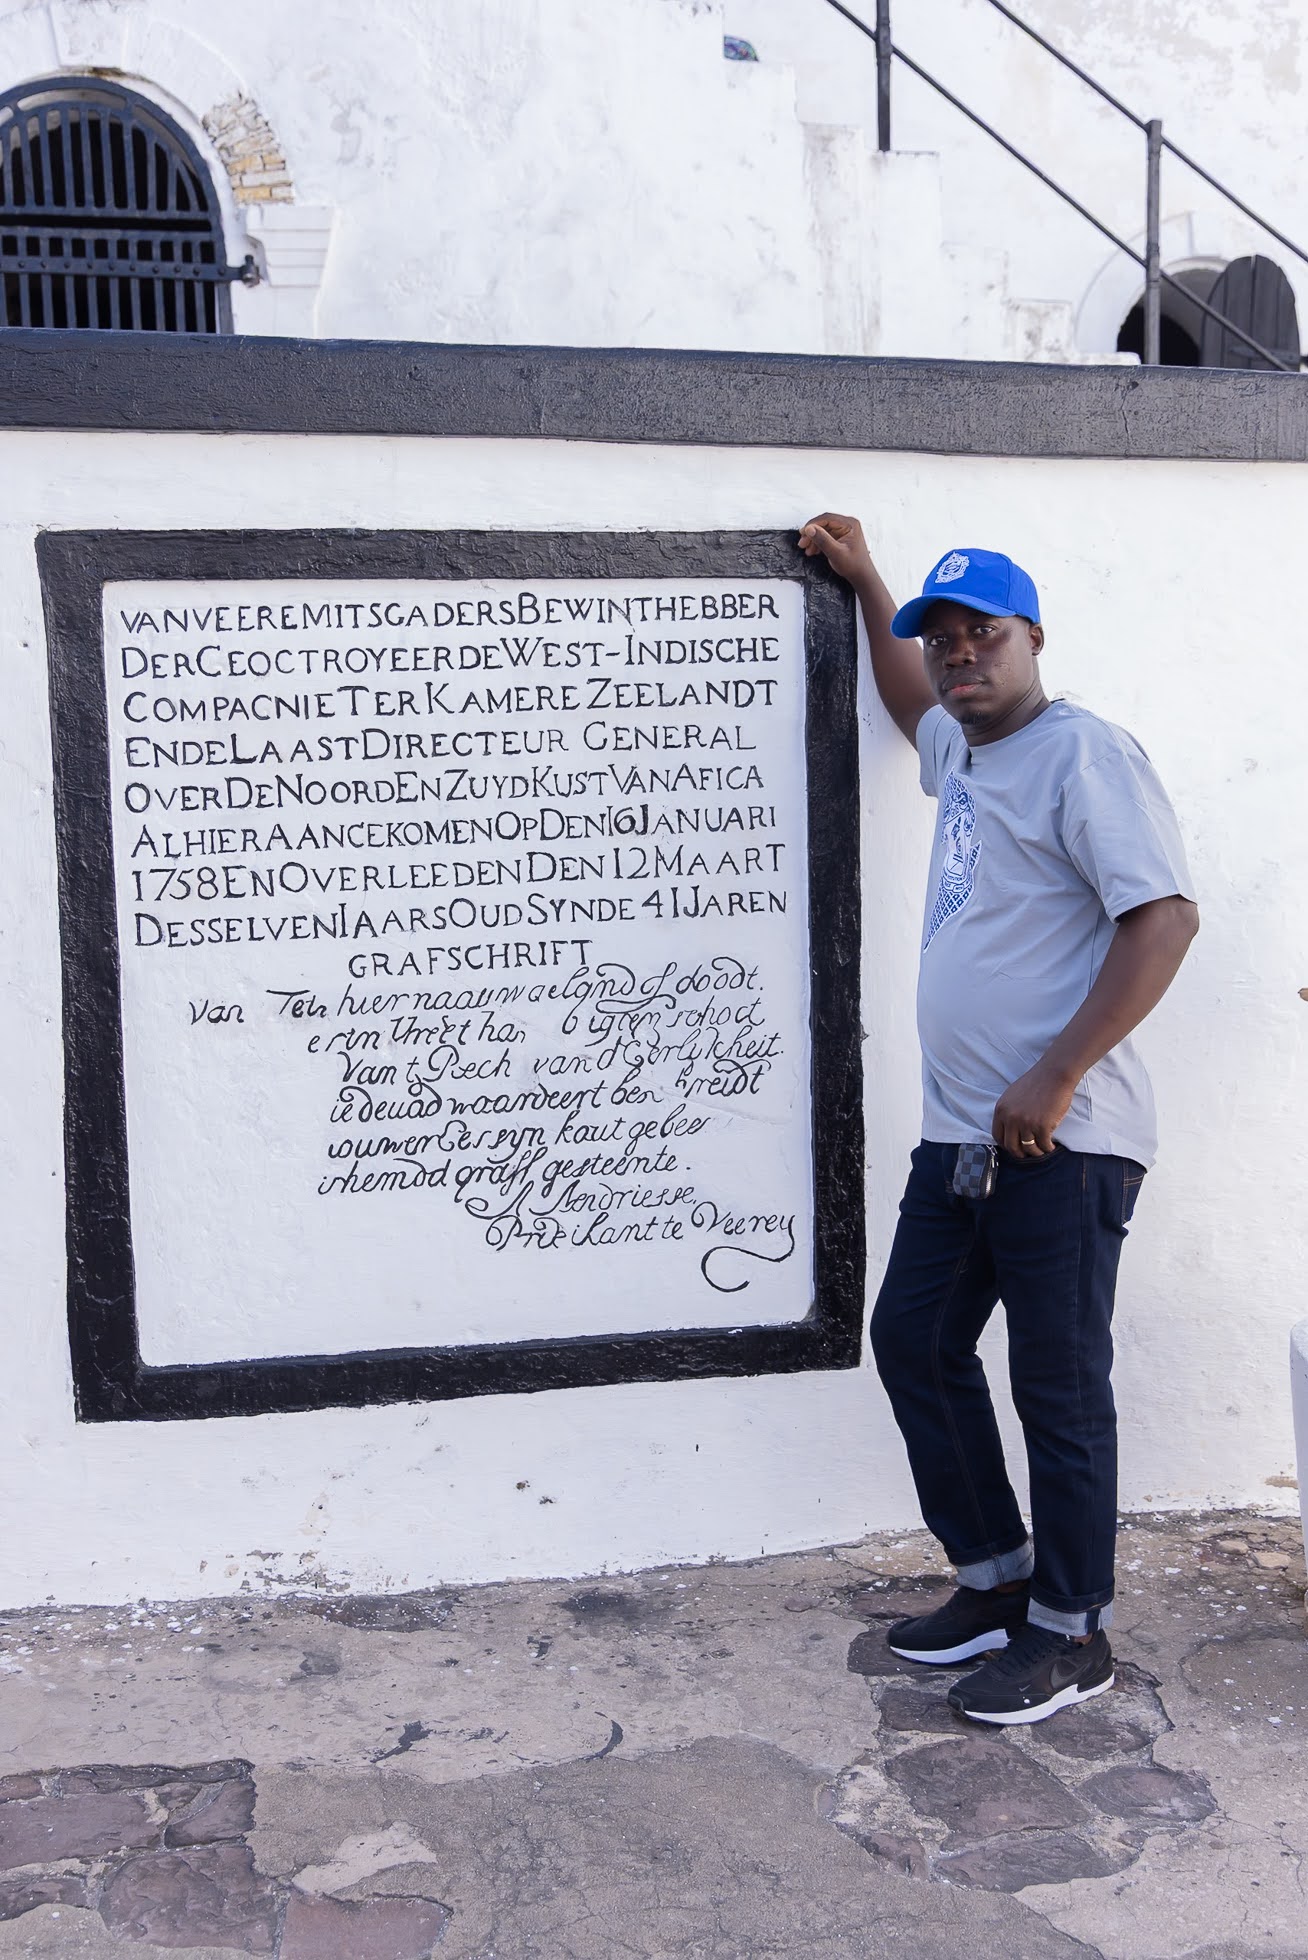 VANVEEREMITSGADERSBEWINTHEBBER
DERGEOCTROYEERDEWEST-INDISCHE
COMPAGNIETERKAMEREZEELANDT
ENDELAASTDIRECTEUR GENERAL
OVERDENOORDENZUYDKUSTVANAFICA
ALHIERAANGEKOMENOPDEN16JANUARI
1758ENOVERLEEDENDEN12MAART
DESSELVENIAARSOUDSYNDE41JAREN
GRAFSCHRIFT
Van hier naauw doodt.
Vreet schoct
Vant van d'Eerlykheit.
waardeert breidt
syn kout gebeer
graff gesteente.
A Andriesse.
te Veerey